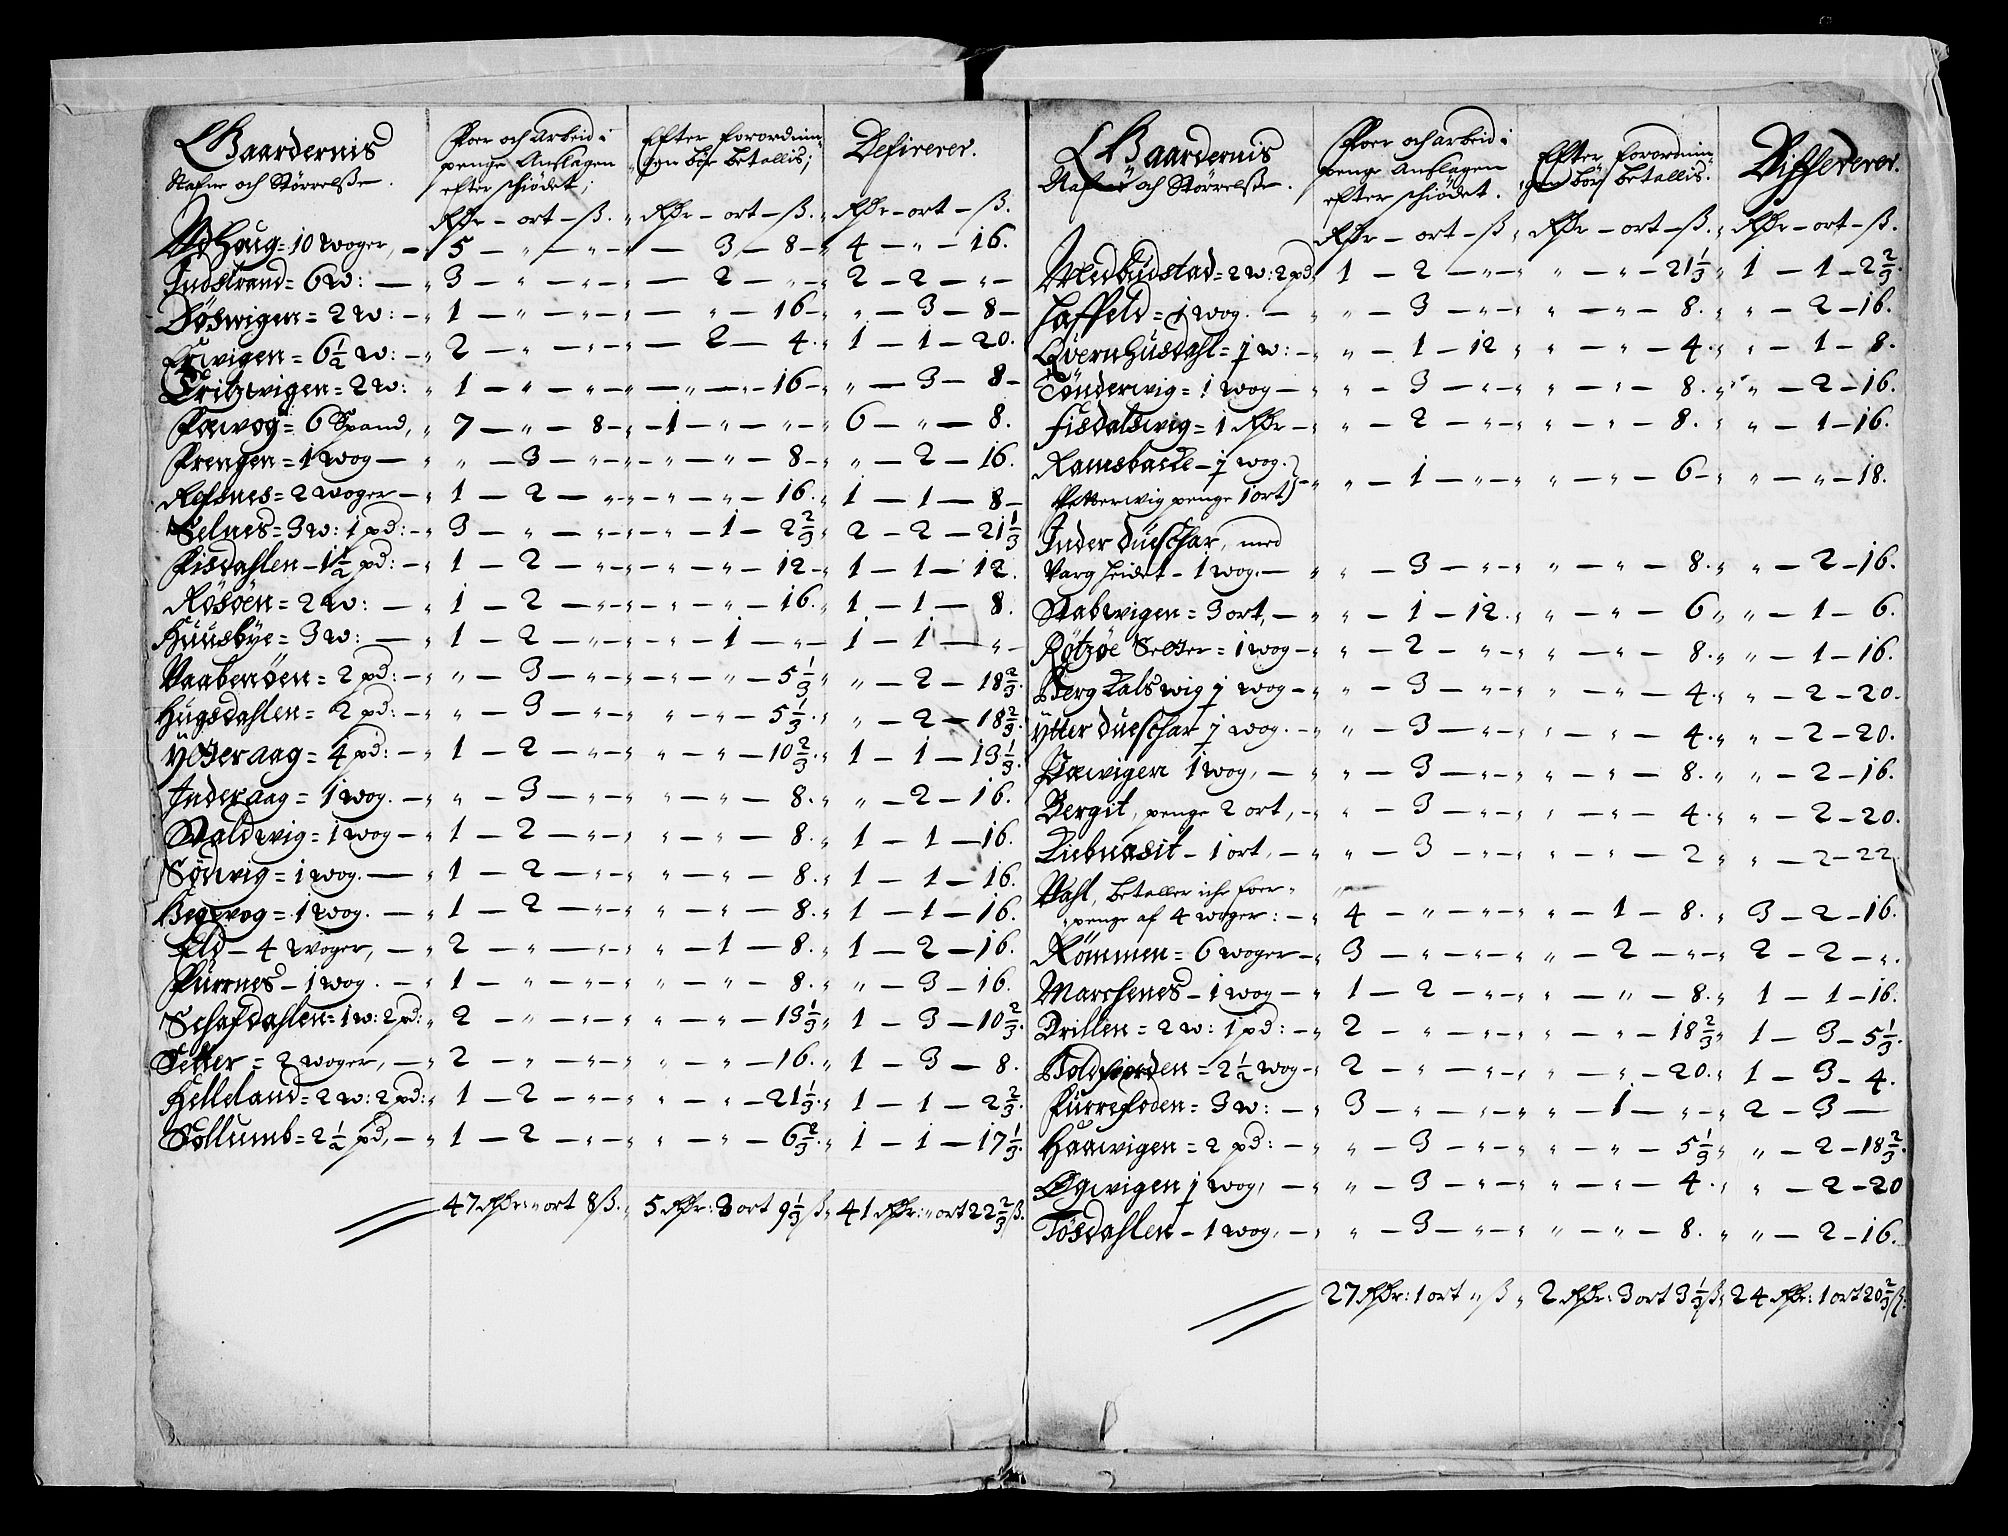 Gaardernis
Nafne och Störrelsse.
Foer och Arbeid i
penge Anslagen
efter schiödet;
Efter forordnin-
gen bör betallis;
Defirerer.
Rdr – ort – ß. Rdr – ort – ß. Rdr – ort – ß.
Udhaug = 10 woger, – 5 – " – " – – 3 – 8 – 4 – " – 16.
Indstrand = 6 w: – 3 – " – " – – 2 – " – 2 – 2 – " –
Dösvigen = 2 w: – 1 – " – " – – " – 16 – " – 3 – 8 –
wigen = 6½ w: – 2 – " – " – – 2 – 4. 1 – 1 – 20.
Fritzwigen = 2 w: 1 – " – " – – " – 16 – " – 3 – 8 –
wog = 6 Spand, 7 – " – 8 – 1 – " – " – 6 – " – 8.
Prengen = 1 wog – " – 3 – " – " – " – 8 – " – 2 – 16.
Rofsnes = 2 woger – 1 – 2 – " – " – " – 16. 1 – 1 – 8 –
Selnes = 3 w: 1 pd: – 3 – " – " – " – 1 – 2⅔ 2 – 2 – 21⅓
Fisdahlen – 1½ pd: – 1 – 2 – " – " – " – 12 – 1 – 1 – 12.
Rösöen = 2 w: – 1 – 2 – " – " – " – 16. 1 – 1 – 8.
Huusbye = 3 w: – 1 – 2 – " – " – 1 – " – 1 – 1 – " –
Vaabenöen = 2 pd: – " – 3 – " – " – " – 5⅓ " – 2 – 18⅔.
Hugsdahlen = 2 pd: – " – 3 – " – " – " – 5⅓. " – 2 – 18⅔.
Ytteraag = 4 pd: – 1 – 2 – " – " – " – 10⅔. 1 – 1 – 13⅓.
Inderaag = 1 wog. – " – 3 – " – " – " – 8. " – 2 – 16.
Waldwig = 1 wog – 1 – 2 – " – " – " – 8. 1 – 1 – 16.
Södwig = 1 wog. – 1 – 2 – " – " – " – 8. 1 – 1 – 16.
Hegwog = 1 wog. – 1 – 2 – " – " – " – 8. 1 – 1 – 16.
Eld – 4 woger, – 2 – " – " – " – 1 – 8. 1 – 2 – 16.
Purrnes – 1 wog. – 1 – " – " – " – " – 8. " – 3 – 16.
Schafdahlen = 1 w: 2 pd: 2 – " – " – " – " – 13⅓ 1 – 3 – 10⅔.
Setter = 2 woger, – 2 – " – " – " – " – 16. 1 – 3 – 8.
Helleland = 2 w: 2 pd: 1 – 2 – " – " – " – 21⅓. 1 – 1 – 2⅔.
Sollumb = 2½ pd, – 1 – 2 – " – " – " – 6⅔. 1 – 1 – 17⅓.
47 Rdr: " ort 8 ß. 5 Rdr: 3 ort 9⅓ ß. 41 Rdr: " ort 22⅔ ß.
Gaardernis
Nafne och Störrelsse.
Foer och arbeid i
penge Anslagen
efter schiödet.
Efter forordnin-
gen bör betallis.
Differerer.
Rdr – ort – ß Rdr – ort – ß. Rdr – ort – ß.
Medbudstad = 2 w: 2 pd 1 – 2 – " – " – " – 21⅓ 1 – 1 – 2⅔.
Haffeld = 1 wog. – " – 3 – " – " – " – 8. " – 2 – 16.
Quernhusdahl = ½ w: – " – 1 – 12 " – " – 4. " – 1 – 8.
Tönderwig = 1 wog – " – 3 – " – " – " – 8. " – 2 – 16.
Fisdalswig = 1 Rdr – " – 2 – " – " – " – 8. " – 1 – 16.
Ramsbacke – ½ wog.
Petterwig penge 1 ort – " – 1 – " – " – " – 6 – " – " – 18.
Inder dueschar, med
Varg heidet – 1 wog. – " – 3 – " – " – " – 8. " – 2 – 16.
Stabwigen = 3 ort, – " – 1 – 12. " – " – 6 " – 1 – 6.
Rötzöe Setter = 1 wog – " – 2 – " – " – " – 8. " – 1 – 16.
Berg dalswig ½ wog – " – 3 – " – " – " – 4. " – 2 – 20.
Ytter dueschar ½ wog. – " – 3 – " – " – " – 4. " – 2 – 20.
wigen 1 wog, – " – 3 – " – " – " – 8. " – 2 – 16.
Bergit, penge 2 ort, – " – 3 – " – " – " – 4. " – 2 – 20.
Liebnesit – 1 ort, – " – 3 – " – " – " – 2 " – 2 – 22
Vahl, betaller iche foer-
penge af 4 woger: – 4 – " – " – " – 1 – 8. 3 – 2 – 16.
Römmen = 6 woger – 3 – " – " – " – 2 – " – 2 – 2 – ".
Marchenes – 1 wog – 1 – 2 – " – " – " – 8. 1 – 1 – 16.
Drillen = 2 w: 1 pd: – 2 – " – " – " – " – 18⅔ 1 – 3 – 5⅓.
Boldfiorden = 2½ wog – 2 – " – " – " – " – 20. 1 – 3 – 4.
Furrefoden = 3 w: – 3 – " – " – " – 1 – " – 2 – 3 –
Haawigen = 2 pd: – " – 3 – " – " – " – 5⅓ " – 2 – 18⅔.
Ogwigen ½ wog, – " – 3 – " – " – " – 4. " – 2 – 20
Tösdahlen – 1 wog, – " – 3 – " – " – " – 8. " – 2 – 16.
27 Rdr: 1 ort " ß 2 Rdr: 3 ort 3⅓ ß. 24 Rdr: 1 ort 20⅔ ß.